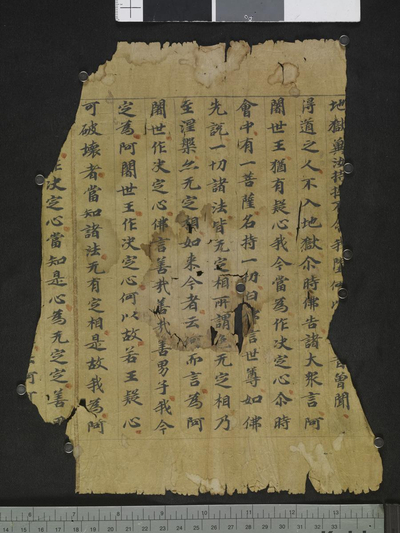 地獄 我墮 曾聞
得道之人不入地獄尒時佛告諸大衆言阿
闍世王猶有疑心我今當為作决定心尒時
會中有一菩薩名持一切白 言世尊如佛
先說一切諸法皆无定相所謂 无定相乃
至涅槃亦无定相如来今者云 而言為阿
闍世作决定心佛言善哉善哉善男子我今
定為阿闍世王作决定心何以故若王疑心
可破壞者當知諸法无有定相是故我為阿
作决定心當知是心為无定定善